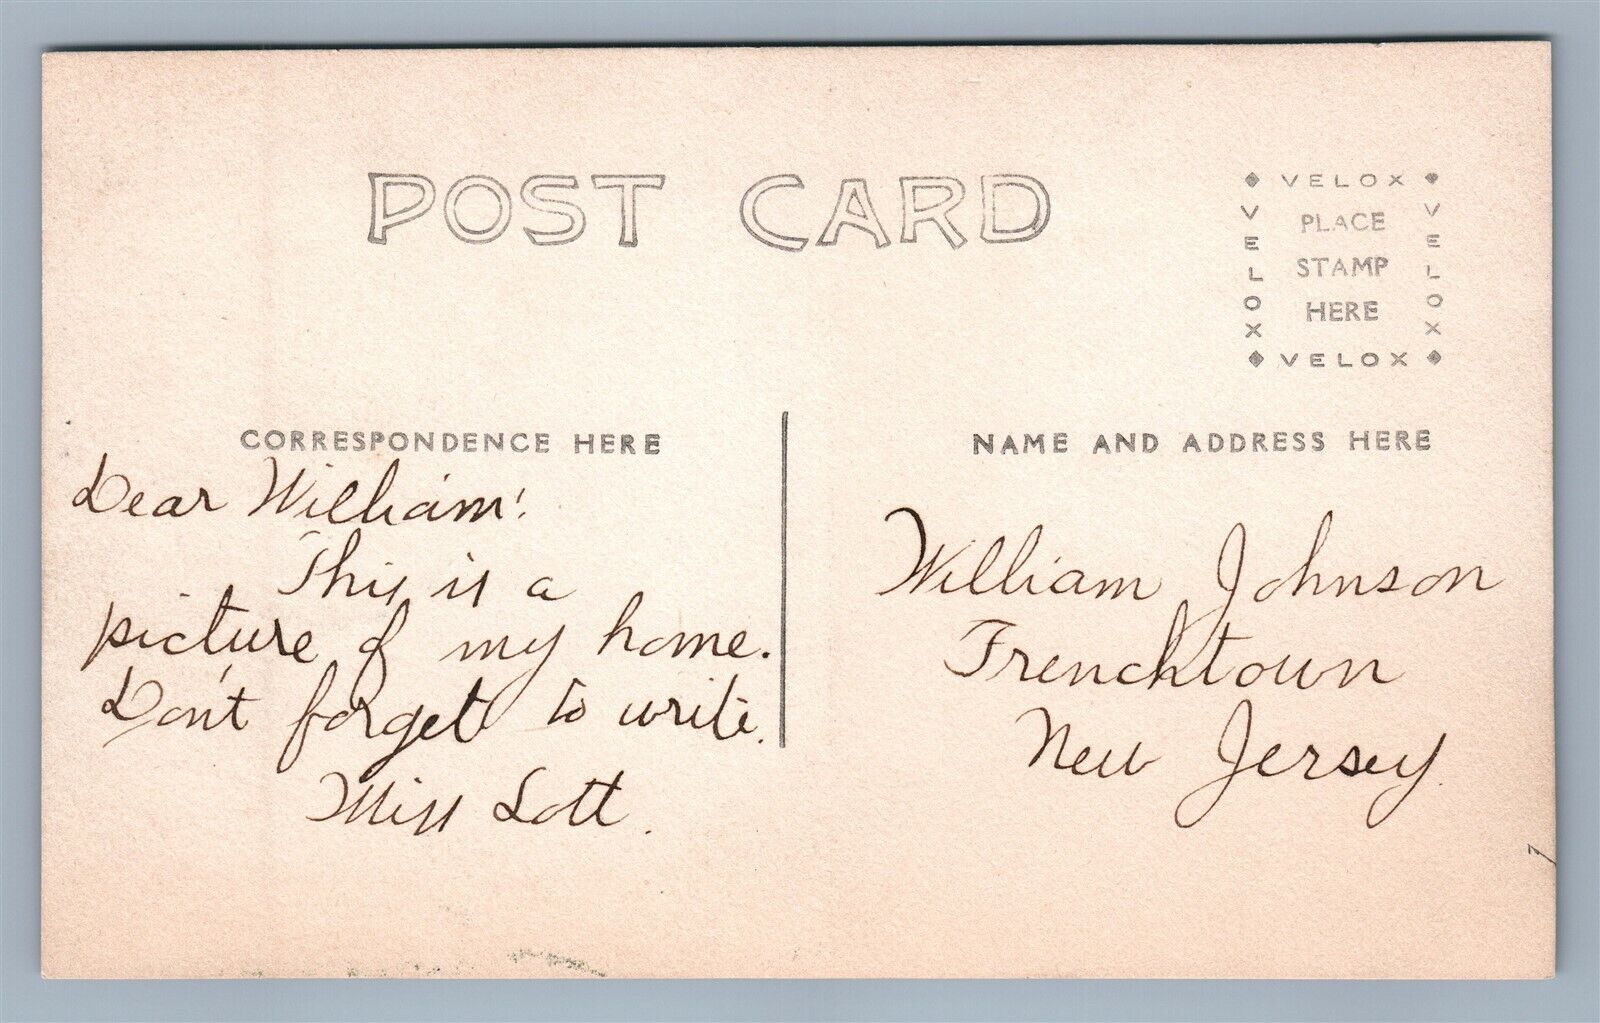 POST CARD
VELOX
VELOX
PLACE
STAMP
HERE
VELOX
VELOX
CORRESPONDENCE HERE
Dear William:
This is a
picture of my home.
Don't forget to write.
Miss Lott.
NAME AND ADDRESS HERE
William Johnson
Frenchtown
New Jersey.